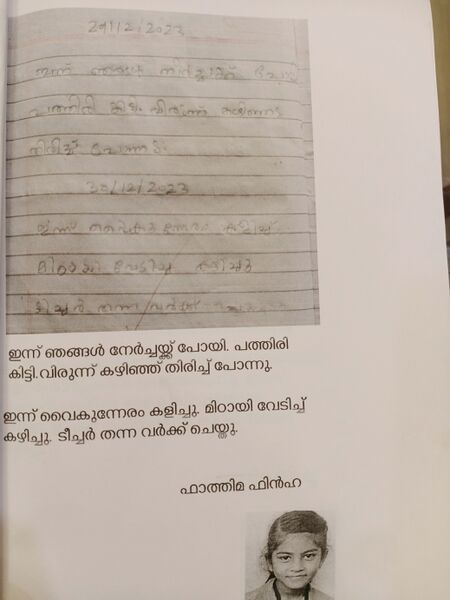 29/12/2023
ഇന്ന് ഞങ്ങൾ നേർച്ചക്ക് പോയി
പത്തിരി കിട്ടി വിരുന്ന് കഴിഞ്ഞ്
തിരിച്ച് പോന്നു
30/12/2023
ഇന്ന് വൈകുന്നേരം കളിച്ചു
മിഠായി വേടിച്ചു കഴിച്ചു
ടീച്ചർ തന്ന വർക്ക്
ഇന്ന് ഞങ്ങൾ നേർച്ചയ്ക്ക് പോയി. പത്തിരി
കിട്ടി.വിരുന്ന് കഴിഞ്ഞ് തിരിച്ച് പോന്നു.
ഇന്ന് വൈകുന്നേരം കളിച്ചു. മിഠായി വേടിച്ച്
കഴിച്ചു. ടീച്ചർ തന്ന വർക്ക് ചെയ്തു.
ഫാത്തിമ ഫിൻഹ